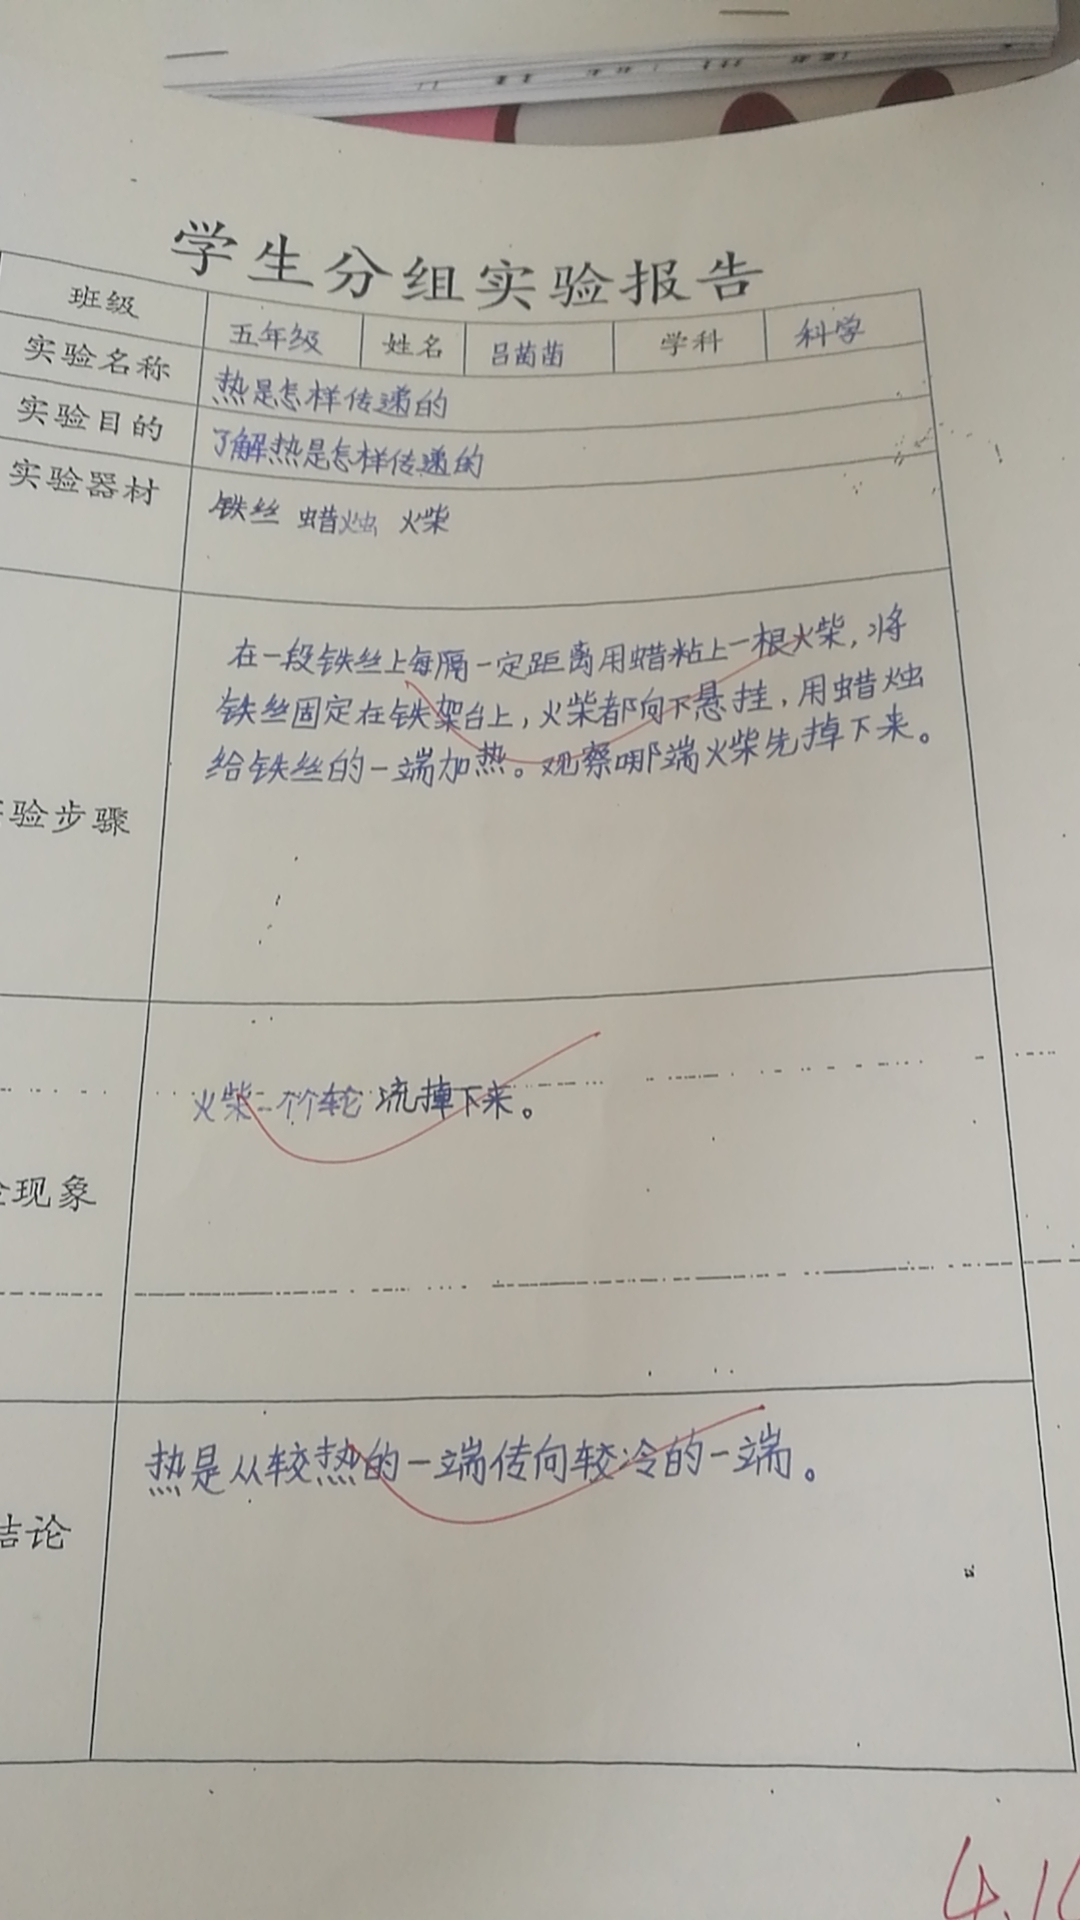 学生分组实验报告
班级 五年级 姓名 吕菡菡 学科 科学
实验名称 热是怎样传递的
实验目的 了解热是怎样传递的
实验器材 铁丝 蜡烛 火柴
在一段铁丝上每隔一定距离用蜡粘上一根火柴,将
铁丝固定在铁架台上,火柴都向下悬挂,用蜡烛
给铁丝的一端加热。观察哪端火柴先掉下来。
验步骤
火柴一个个轮流掉下来。
现象
热是从较热的一端传向较冷的一端。
结论